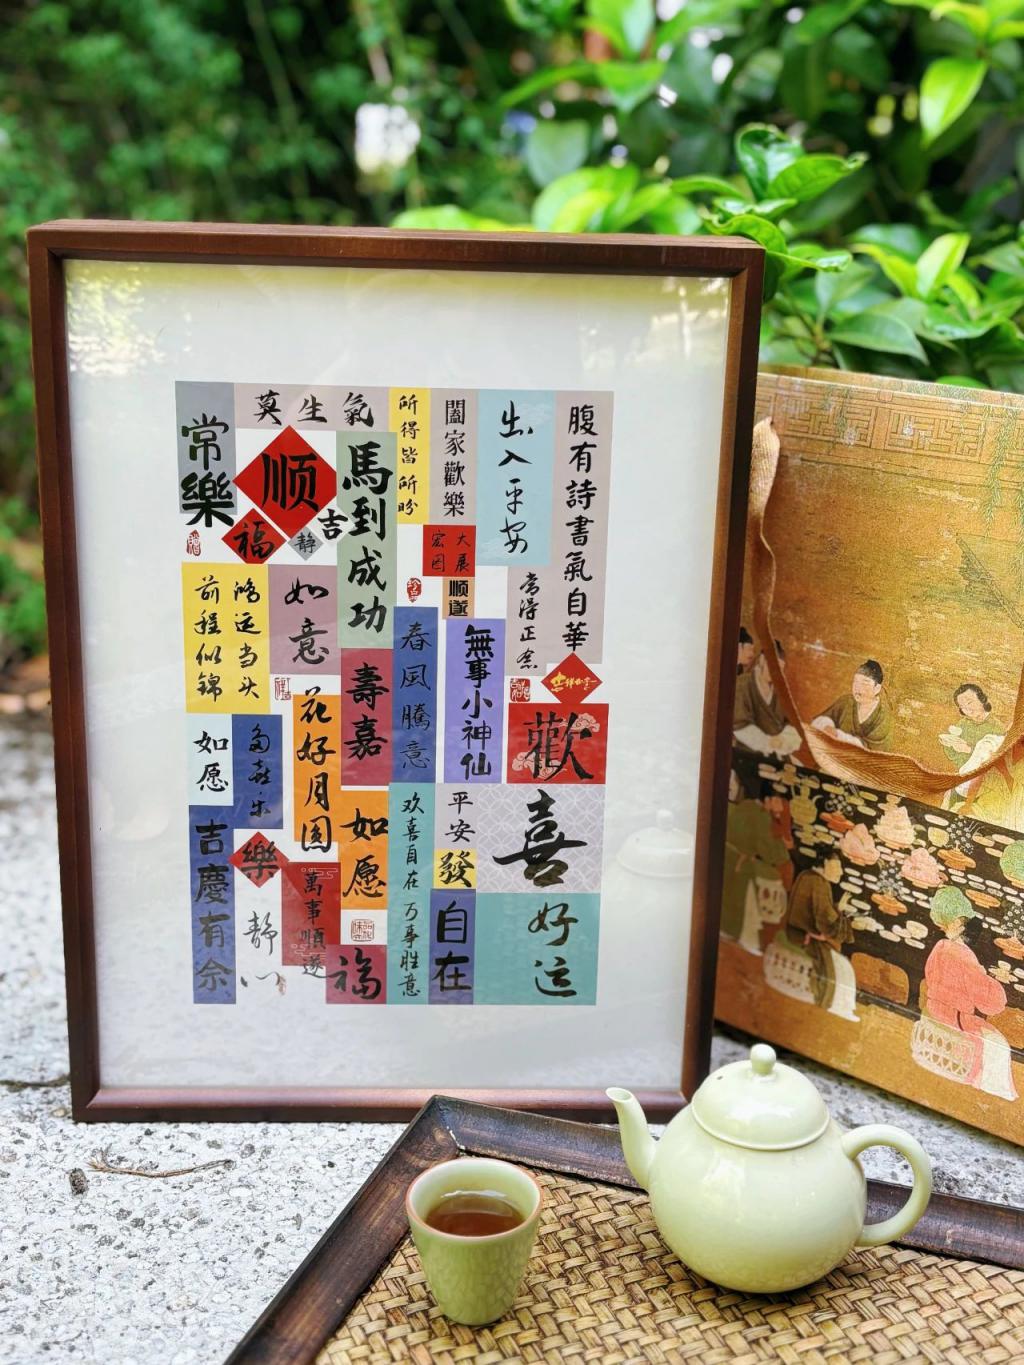 常樂
莫生氣
順
福
吉
静
馬到成功
所得皆所盼
闔家歡樂
出入平安
腹有詩書氣自華
大展
宏图
顺遂
常得正念
鴻运当头
前程似锦
如意
壽嘉
春風騰意
無事小神仙
歡
喜
花好月圆
如愿
多喜乐
吉慶有余
樂
静心
萬事順遂
如愿
福
欢喜自在 万事胜意
平安
發
自在
好运